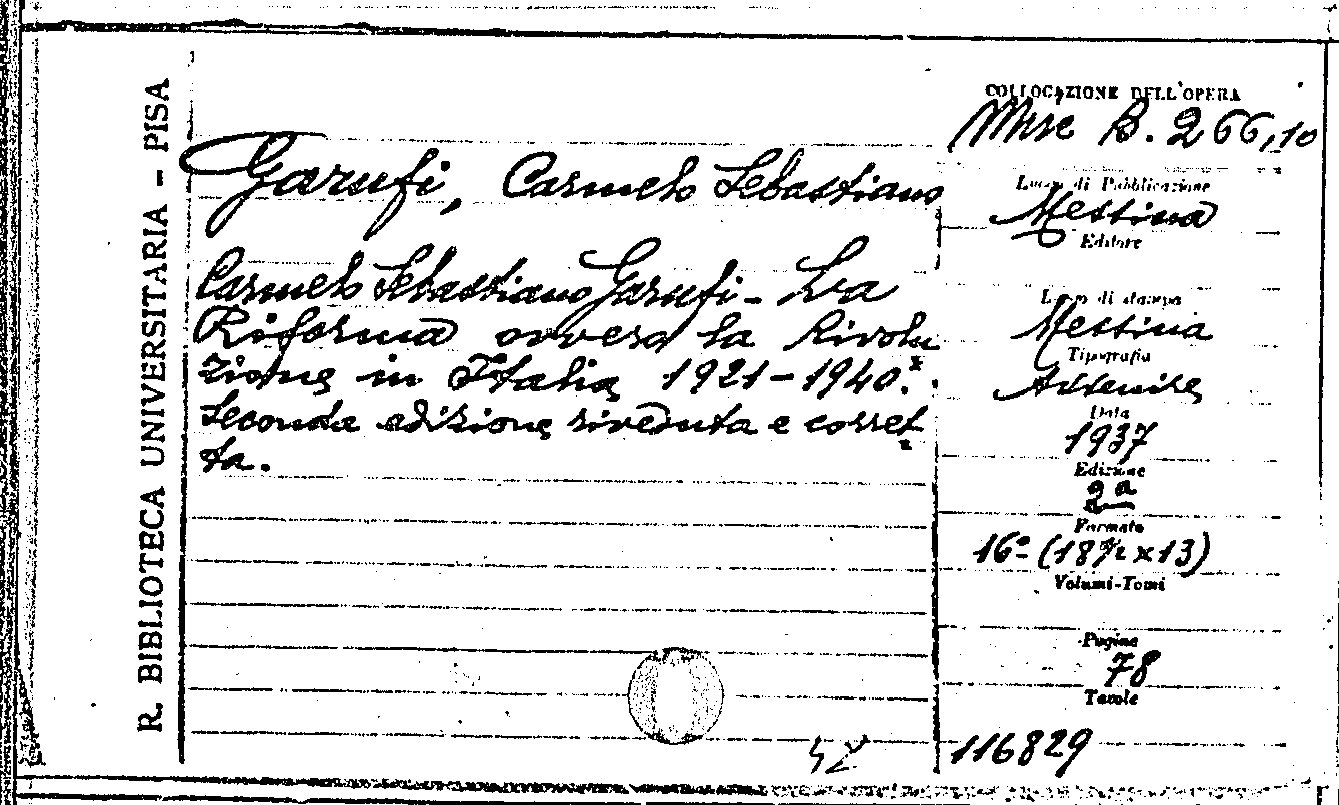 R. BIBLIOTECA UNIVERSITARIA - PISA
Garufi, Carmelo Sebastiano
Carmelo Sebastiano Garufi - La
Riforma ovvero la Rivolu
zione in Italia 1921-1940.
Seconda edizione riveduta e corret
ta.
COLLOCAZIONE DELL'OPERA
Misc B. 266,10
Luogo di Pubblicazione
Messina
Editore
Luogo di stampa
Messina
Tipografia
Data
1937
Edizione
2a
Formato
16° (18½ x 13)
Volumi-Tomi
Pagine
78
Tavole
116829